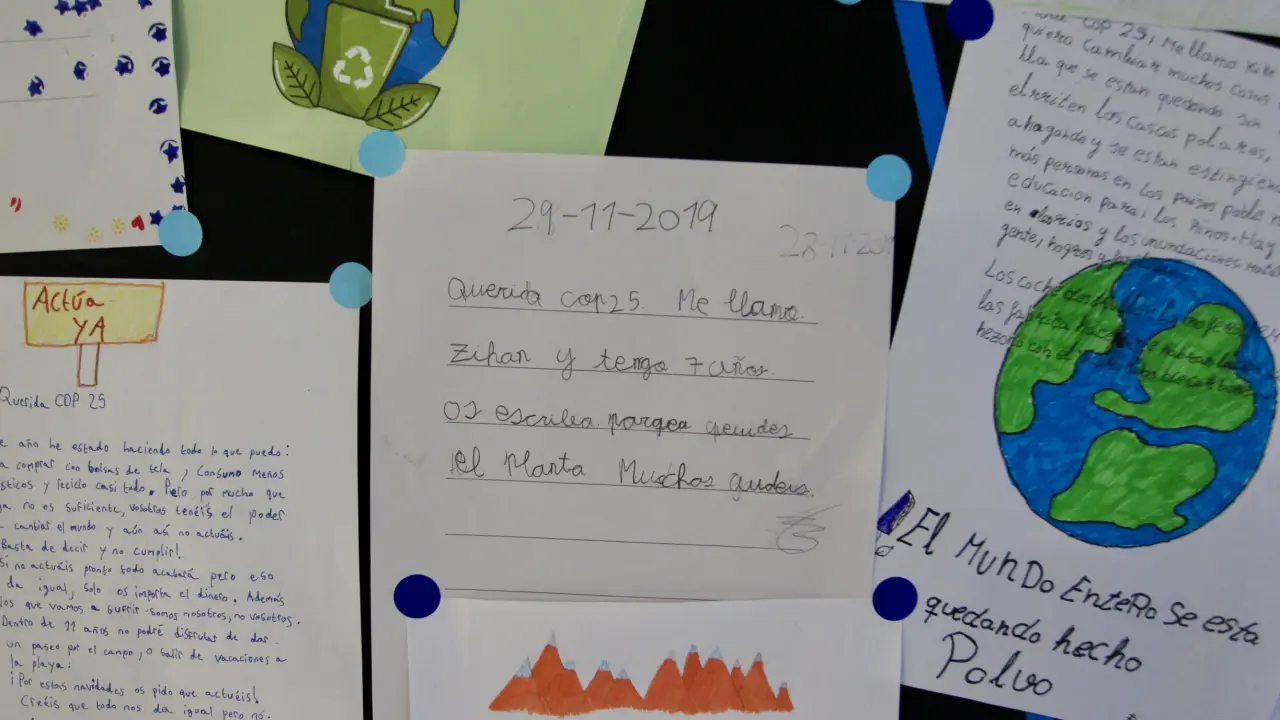 Actúa
YA
Querida COP 25
e año he estado haciendo todo lo que puedo:
a comprar con bolsas de tela, Consumo menos
sticos y reciclo casi todo. Pero por mucho que
no es suficiente, vosotros tenéis el poder
cambiar el mundo y aún así no actuáis.
Basta de decir y no cumplir!
Si no actuáis pronto todo acabará pero eso
da igual, solo os importa el dinero. Además
los que vamos a sufrir somos nosotros, no vosotros.
Dentro de 11 años no podré disfrutar de dar
un paseo por el campo, o salir de vacaciones a
la playa.
¡Por estas navidades os pido que actuéis!
Creéis que todo nos da igual pero no.
29-11-2019
28-11-201
Querida cop25. Me llamo
Zihan y tengo 7 años.
os escriba porque
El Planta Muchos
COP 25, Me llamo
quiero cambiar muchas cosas
lla que se estan quedando sin
elrriten los cascos polares,
ahogando y se estan estingien
más personas en los paises poble
educacion para, los niños. Hay
en y los inundaciones
gente, hogres y
Los coch
las
hezono con el
El MUnDo EnteRo Se esta
quedando hecho
Polvo